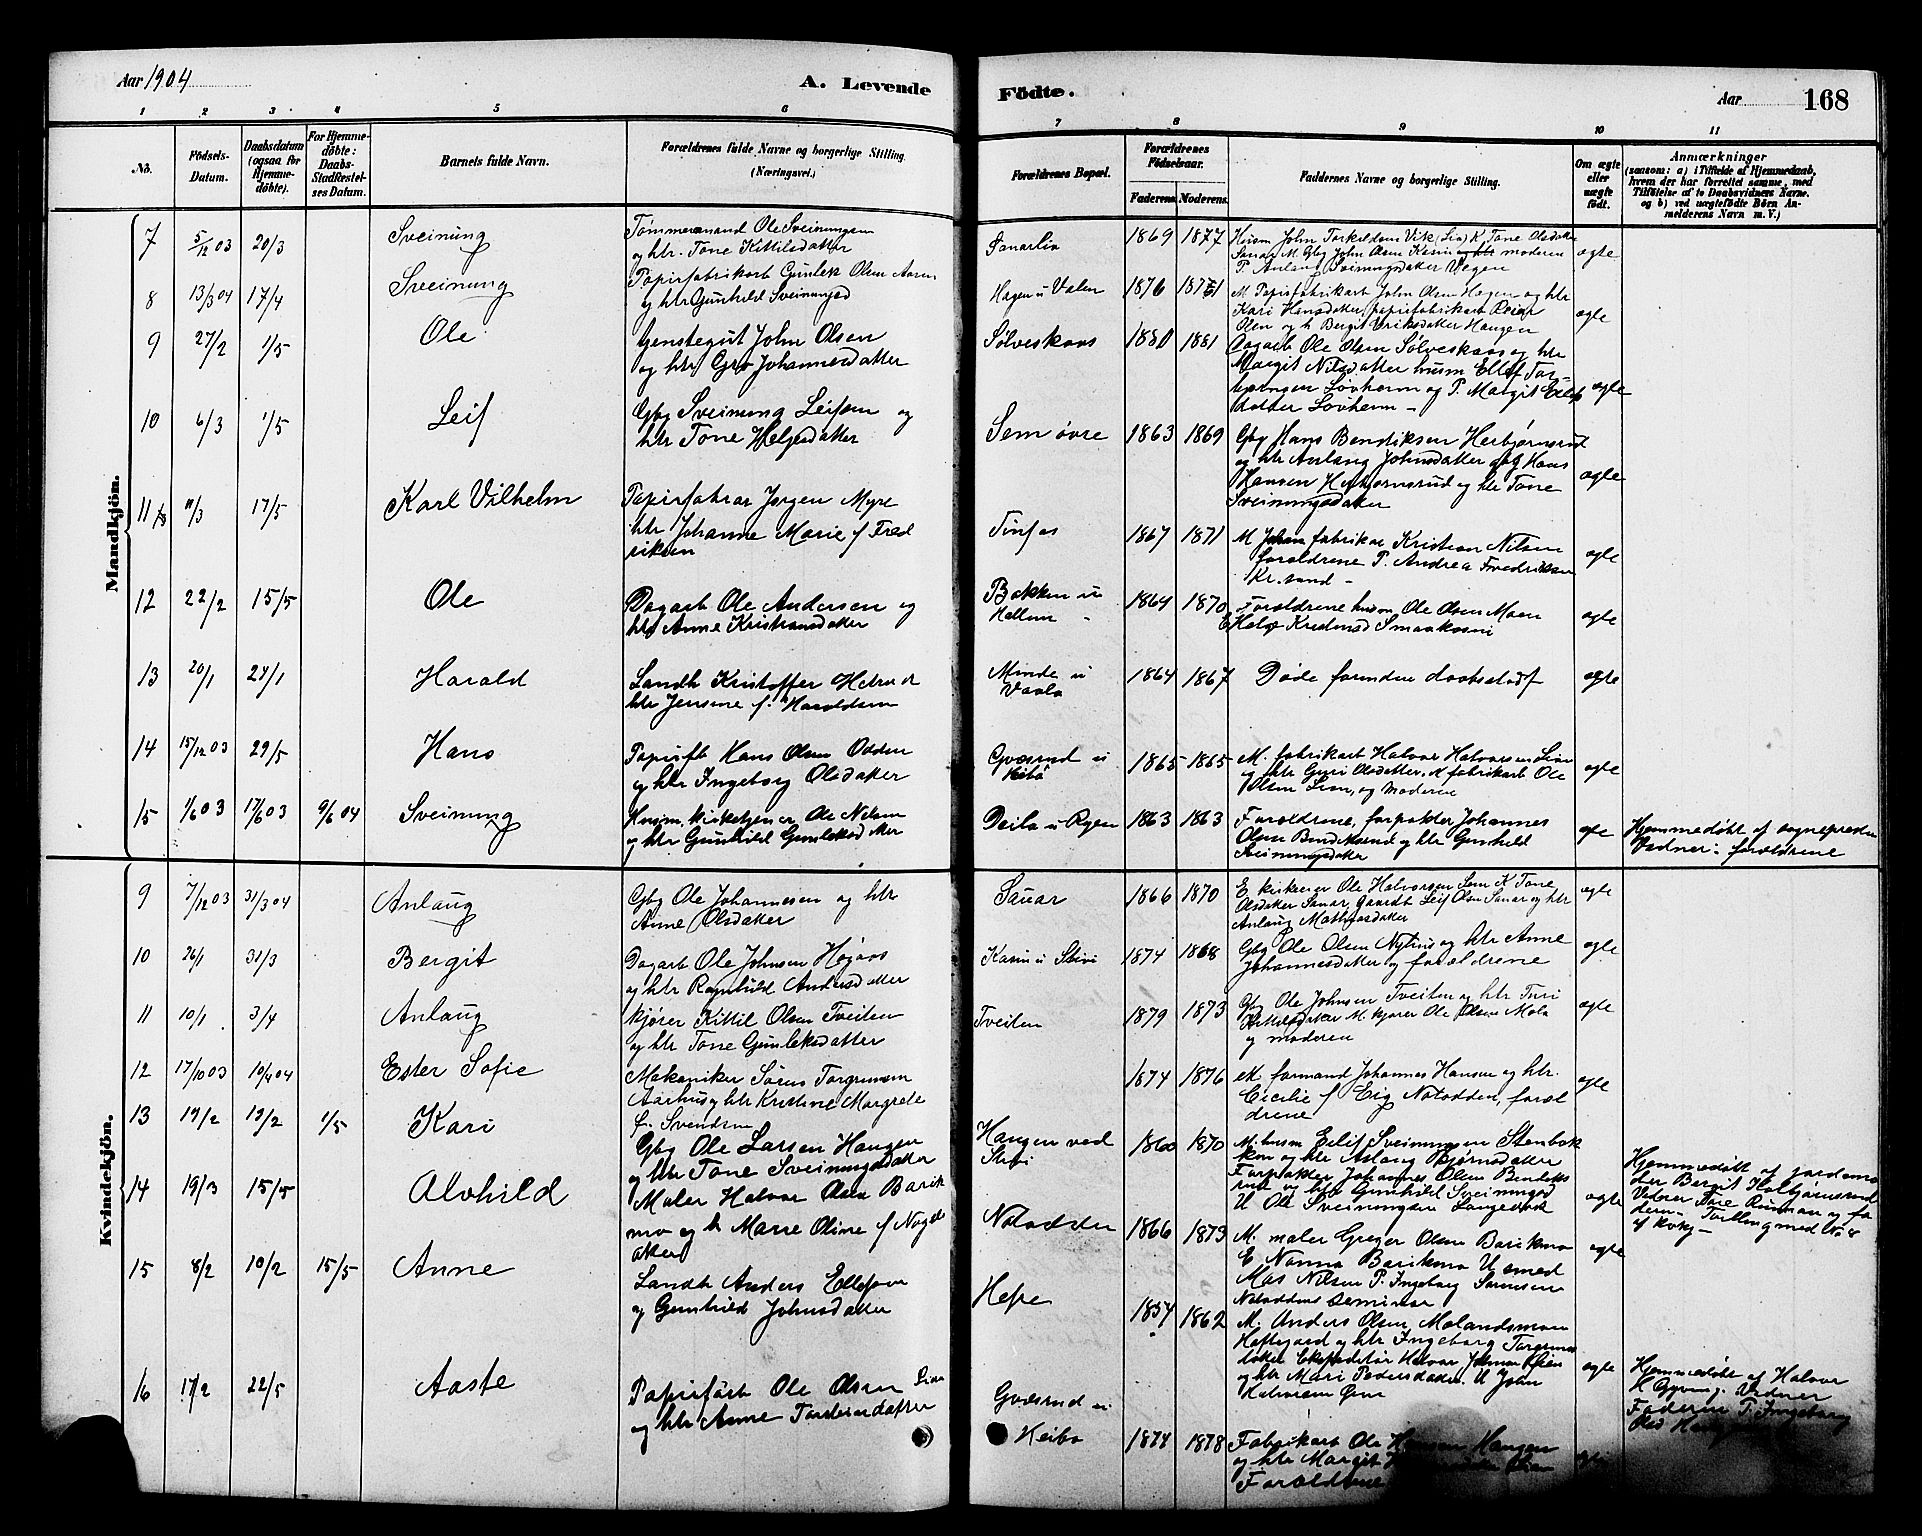 Aar 1904
A. Levende
Födte.
Aar
168
1 2 3 4 5 6 7 8 9 10 11
No.
Födsels-Datum.
Daabsdatum (ogsaa for Hjemme-döbte).
For Hjemme-döbte: Daabs-Stadfæstel-ses Datum.
Barnets fulde Navn.
Forældrenes fulde Navne og borgerlige Stilling. (Næringsvei.)
Forældrenes Bopæl.
Forældrenes Födselsaar.
Faderens. Moderens.
Faddernes Navne og borgerlige Stilling.
Om ægte eller uægte födt.
Anmærkninger
(saasom: a) i Tilfælde af Hjemmedaab, hvem der har forrettet samme, med Tilföielse af to Daabsvidners Navne. og b) ved uægtefödte Börn An-melderens Navn m. V.)
Mandkjön.
7 5/12 03 20/3 Sveinung
Tømmermand Ole Sveinungsen
og htr. Tone Kittilsdatter
Sanarlia 1869 1877
Husm John Torkildsen Vik (Lia) K. Tone Olsdatter
Sanar M. Gbg John Olsen Kasin moderen
P. Anlaug Sveinungsdatter Vegen
ægte
8 13/3 04 17/4 Sveinung
Papirfabrikarb Gunlek Olsen
og htr Gunhild Sveinungsd
Hagen u Valen 1876 1871
M Papirfabrikarb John Olsen Hagen og htr
Kari Hansdatter, papirfabrikarb Reiar
Olsen og h Bergit Eriksdatter Haugen
ægte
9 27/2 1/5 Ole
Tjenstegut John Olsen
og htr Gro Johannesdatter
Sølveskaas 1880 1881
Dagarb Ole Olsen Sølveskaas og htr
Margit Nilsdatter husm Ellef Tor-
Løvheim og P. Margit Ellefs
datter Løvheim -
ægte
10 6/3 1/5 Leif
Gbg Sveinung Leifsen og
htr Tone Helgesdatter
Sem øvre 1863 1869
Gbg Hans Bendiksen Herbjørnsrud
og htr Anlaug Johnsdatter gbg Hans
Hansen Herbjørnsrud og htr Tone
Sveinungsdatter
ægte
11 11/3 17/5 Karl Vilhelm
Papirfabrar Jørgen Myre
htr Johanne Marie f Fred
riksen
Tinfos 1867 1871
M fabrikar Kristian Nilsen
forældrene P. Andrea Fredriksen
Kr.sand -
ægte
12 22/2 15/5 Ole
Dagarb Ole Andersen og
htr Anne Kristiansdatter
Bakken u
Hellem 1864 1870
Forældrene husm Ole Olsen Moen
ægte
13 20/1 24/1 Harald
Landh Kristoffer
htr Jensine f. Haraldsen
Minde u
Vaala 1864 1867
Døde forinden daabsstadf
ægte
14 15/12 03 29/5 Hans
Papirfb Hans Olsen Odden
og htr Ingeborg Olsdatter
Gvæsrud u
Heibø 1865 1865
M. fabrikart Halvor Halvorsen Lian
og htr Guri Olsdatter, K fabrikarb Ole
Olsen Lien, og moderen
ægte
15 1/6 03 17/6 03 9/6 04 Sveinung
Husm. kirketjener Ole Nilsen
og htr Gunhild Gunleksdatter
Deila u Ryen 1863 1863
Forældrene, forpakter Johannes
Olsen Bendiksrud og htr Gunhild
Sveinungsdatter
ægte
Hjemmedøbt af sogneprsten
Vidner: forældrene
Kvindekjön.
9 7/12 03 31/3 04 Anlaug
Gbg Ole Johannesen og htr
Anne Olsdatter
Sauar 1866 1870
E kirkeier Ole Halvorsen Sem K Tone
Olsdatter Sanar, gaardb Leif Olsen Sanar og htr
Anlaug Mathiasdatter
ægte
10 26/1 31/3 Bergit
Dagarb Ole Johnsen Høgaas
og htr Ragnhild Andersdatter
Kasin u Skiri 1874 1868
Gbg Ole Olsen Nytrud og htr Anne
Johannesdatter og forældrene
ægte
11 10/1 3/4 Anlaug
kjører Kittil Olsen Tveiten
og htr Tone Gunleksdatter
Tveiten 1879 1873
Gbg Ole Johnsen Tveiten og htr Turi
Kittilsdatter M. kjører Ole Olsen Mola
og moderen
ægte
12 17/10 03 10/4 04 Ester Sofie
Mekaniker Søren Torgrimsen
Aarhus og htr Kristine Margrete
f. Svendsen
1874 1876
M. formand Johannes Hansen og htr.
Cecilie f Eig Notodden, foræl
drene
ægte
13 19/2 19/2 1/5 Kari
Gbg Ole Larsen Haugen
og htr Tone Sveinungsdatter
Haugen ved
Skiri 1860 1870
M. husm Eilif Sveinungsen Stenbok
ken og htr Aslaug Bjørnsdatter
Forpakter Johannes Olsen Bendiks
rud og htr Gunhild Sveinungsd
U Ole Sveinungsen Langevik
ægte
Hjemmedøbt af jordemo
der Bergit Halbjørnsrud
Vidner: Tone Runman og fa
deren.
14 19/3 15/5 Alvhild
Maler Halvor Olsen Barik
mo og h Marie Oline f Nagels
datter
Notodden 1866 1873
M. maler Greger Olsen Barikmo
E Nanna Barikmo U smed
Mas Nilsen P. Ingeborg Sørensen
Notoddens seminar
ægte
15 8/2 10/2 15/5 Anne
Landh Anders Ellefsen
og Gunhild Johnsdatter
Hefre 1857 1862
M. Anders Olsen Molandsmoen
Heftegaard og htr Ingeborg Torgrims
datter Ekspeditør Halvor Johnsen
og htr Mari Pedersdatter. U John
Halvorsen
ægte
Hjemmedøbt af Halvor
Vidner
Faderen P. Ingeborg
16 17/2 22/5 Aaste
Papirfbarb Ole Olsen Lien
og htr Anne Torsteinsdatter
Gvæsrud u
Heibø 1874 1878
Fabrikarb Ole Hansen Haugen
og htr Margit Lien
Forældrene